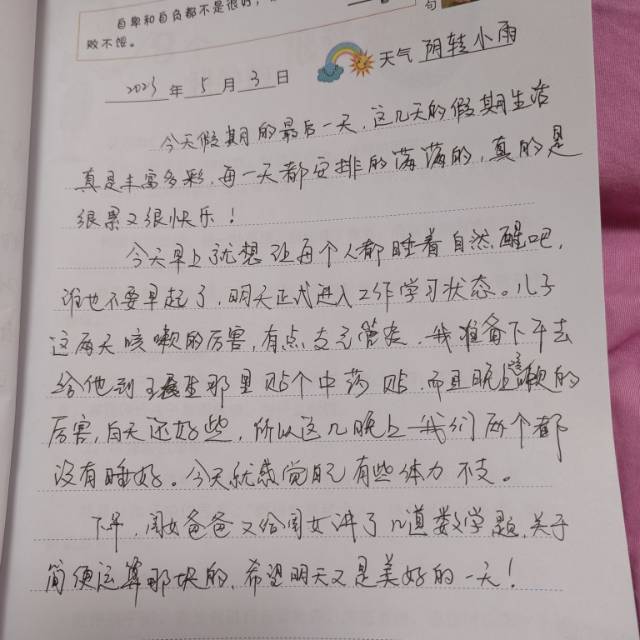 自卑和自负都不是很好,
败不馁。
句
2023年5月3日 天气 阴转小雨
今天假期的最后一天,这几天的假期生活
真是丰富多彩,每一天都安排的满满的,真的是
很累又很快乐!
今天早上就想让每个人都睡着自然醒吧,
谁也不要早起了,明天正式进入工作学习状态。儿子
这两天咳嗽的厉害,有点支气管炎,我准备下午去
给他到王医生那里贴个中药贴,而且晚上咳嗽的
厉害,白天还好些,所以这几晚上我们两个都
没有睡好。今天就感觉自己有些体力不支。
下午,闺女爸爸又给闺女讲了几道数学题,关于
简便运算那块的,希望明天又是美好的一天!